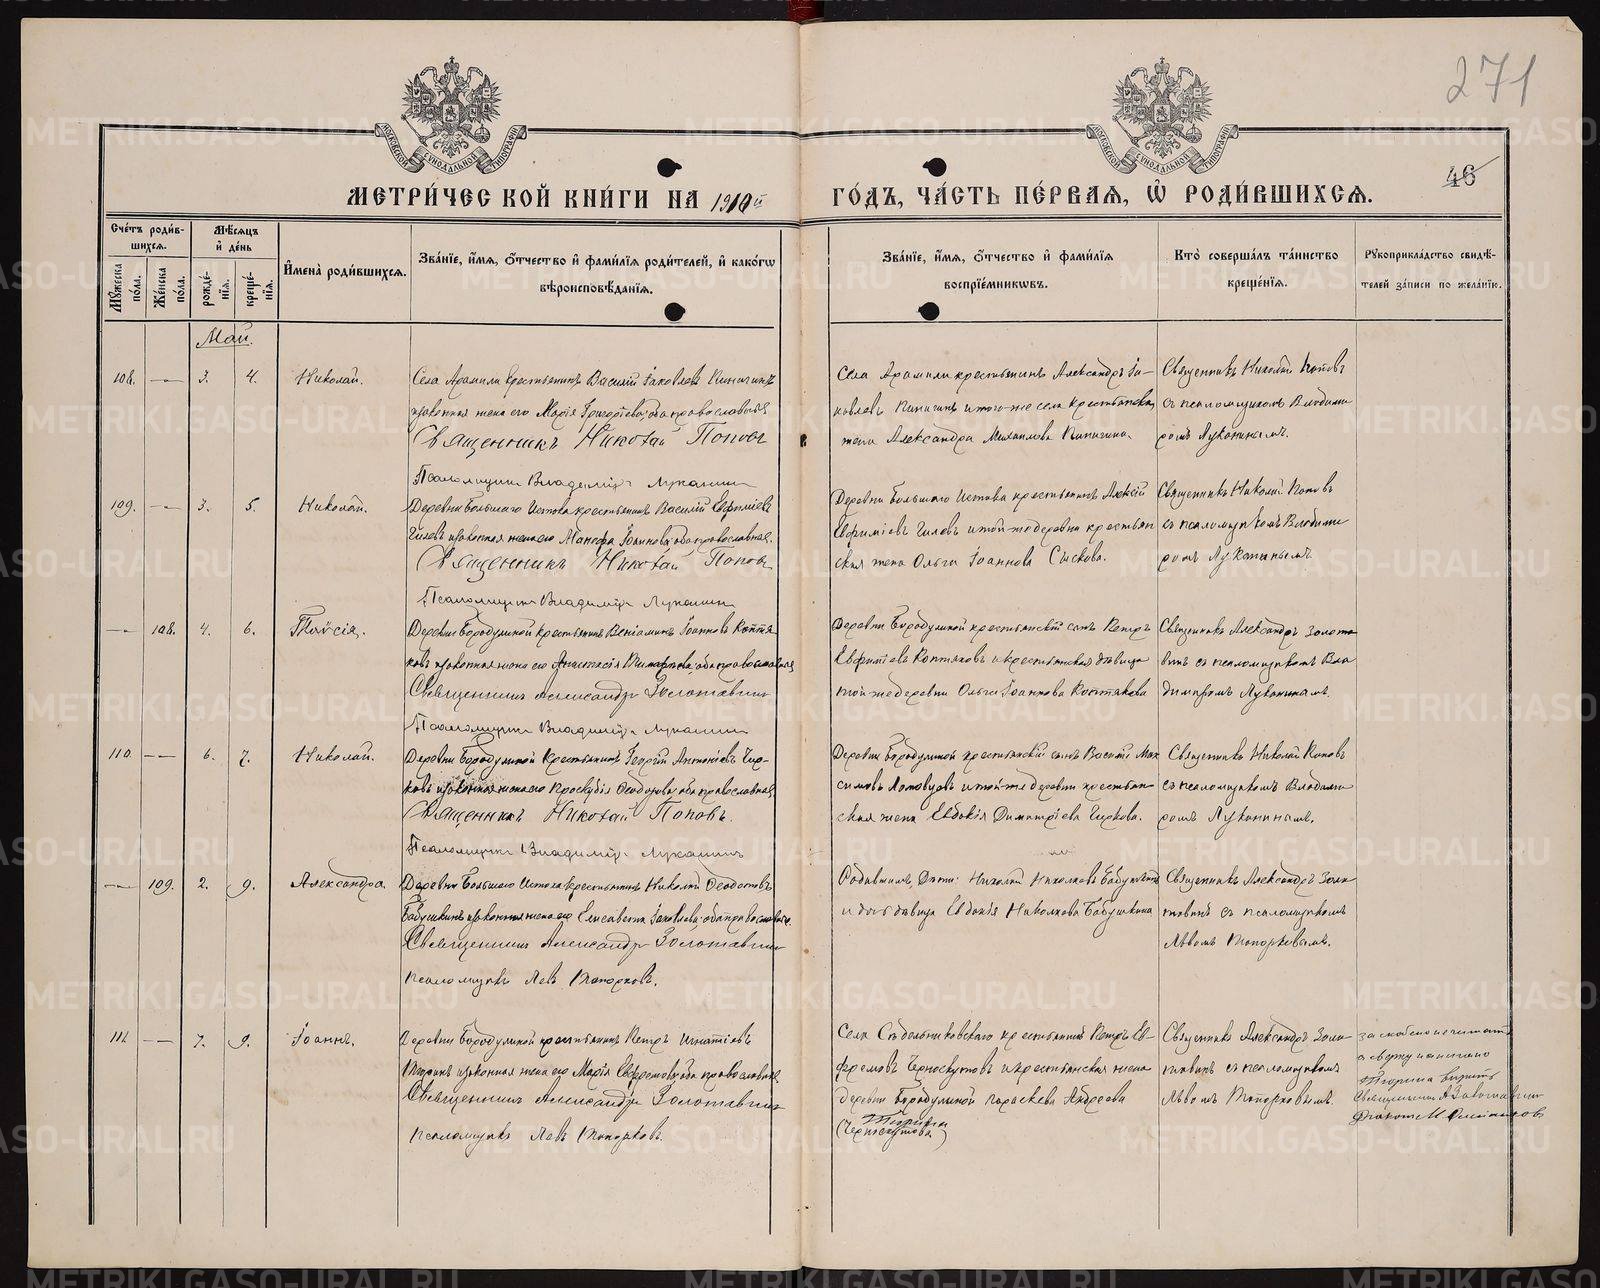 271
46
МЕТРИЧЕСКОЙ КНИГИ НА 1910й ГОДЪ, ЧАСТЬ ПЕРВАЯ, Ѿ РОДИВШИХСЯ.
МОСКОВСКОЙ СѴНОДАЛЬНОЙ ТИПОГРАФІИ
МОСКОВСКОЙ СѴНОДАЛЬНОЙ ТИПОГРАФІИ
Счетъ родив-
шихся.
Мужеска пола.
Женска пола.
Мѣсяцъ и день
рожде-
нія.
креще-
нія.
Имена родившихся.
Званіе, имя, отчество и фамилія родителей, и какогѡ
вѣроисповѣданія.
Званіе, имя, отчество и фамилія
воспріемникѡвъ.
Кто совершалъ таинство
крещенія.
Рукоприкладство свидѣ-
телей записи по желанію.
Май.
108. — 3. 4. Николай.
Села Арамили крестьянинъ Василій Іаковлевъ Кипичинъ
и законная жена его Марія Григоріева, оба православные
Священникъ Николай Поповъ
Псаломщикъ Владиміръ Луканинъ
Села Арамили крестьянинъ Александръ Іа-
ковлевъ и того-же села крестьянская
жена Александра Михаилова
Священникъ Николай Поповъ
съ псаломщикомъ Владими-
ромъ Луканинымъ.
109. — 3. 5. Николай.
Деревни Большаго Истока крестьянинъ Василій Евфиміевъ
и законная жена его Іоаннова, оба православные.
Священникъ Николай Поповъ
Псаломщикъ Владиміръ Луканинъ
Деревни Большаго Истока крестьянинъ Алексій
Евфиміевъ и той-же деревни крестьян
ская жена Ольга Іоаннова
Священникъ Николай Поповъ
съ псаломщикомъ Владими
ромъ Луканинымъ.
— 108. 4. 6. Таисія.
Деревни Бородулиной крестьянинъ Веніаминъ Іоанновъ Коптя-
ковъ и законная жена его Анастасія оба православные
Священникъ Александръ Золотавинъ
Псаломщикъ Владиміръ Луканинъ
Деревни Бородулиной крестьянскій сынъ Петръ
Евфиміевъ Коптяковъ и крестьянская дѣвица
той же деревни Ольга Іоаннова Коптякова
Священникъ Александръ Золота
винъ съ псаломщикомъ Вла
диміромъ Луканинымъ.
110. — 6. 7. Николай.
Деревни Бородулиной крестьянинъ Георгій Антоніевъ Чир-
ковъ и законная жена его Проскудія Ѳеодорова, оба православные.
Священникъ Николай Поповъ.
Псаломщикъ Владиміръ Луканинъ
Деревни Бородулиной крестьянскій сынъ Василій Мак
симовъ и той-же деревни крестьян
ская жена Евдокія Димитріева Чиркова.
Священникъ Николай Поповъ
съ псаломщикомъ Владими
ромъ Луканинымъ.
— 109. 2. 9. Александра.
Деревни Большаго Истока крестьянинъ Николай Ѳеодотовъ
Бабушкинъ и законная жена его Елисавета Іаковлева, оба православные.
Священникъ Александръ Золотавинъ
псаломщикъ Левъ Топорковъ.
Николай Николаевъ Бабушкинъ
и дѣвица Евдокія Николаева Бабушкина
Священникъ Александръ Золо
тавинъ съ псаломщикомъ
Львомъ Топорковымъ.
111. — 7. 9. Іоаннъ.
Деревни Бородулиной крестьянинъ Петръ Игнатіевъ
Тюринъ и законная жена его Марія Евфремова, оба православные
Священникъ Александръ Золотавинъ
Псаломщикъ Левъ Топорковъ.
Села крестьянинъ Петръ Ев-
фремовъ Черноскутовъ и крестьянская жена
деревни Бородулиной Параскева Андреева
Тюрина
(Черноскутова)
Священникъ Александръ Золо-
тавинъ съ псаломщикомъ
Львомъ Топорковымъ.
за скобою не читать
а сверху написано
Тюрина вѣрить
Священникъ А Золотавинъ
Діаконъ М